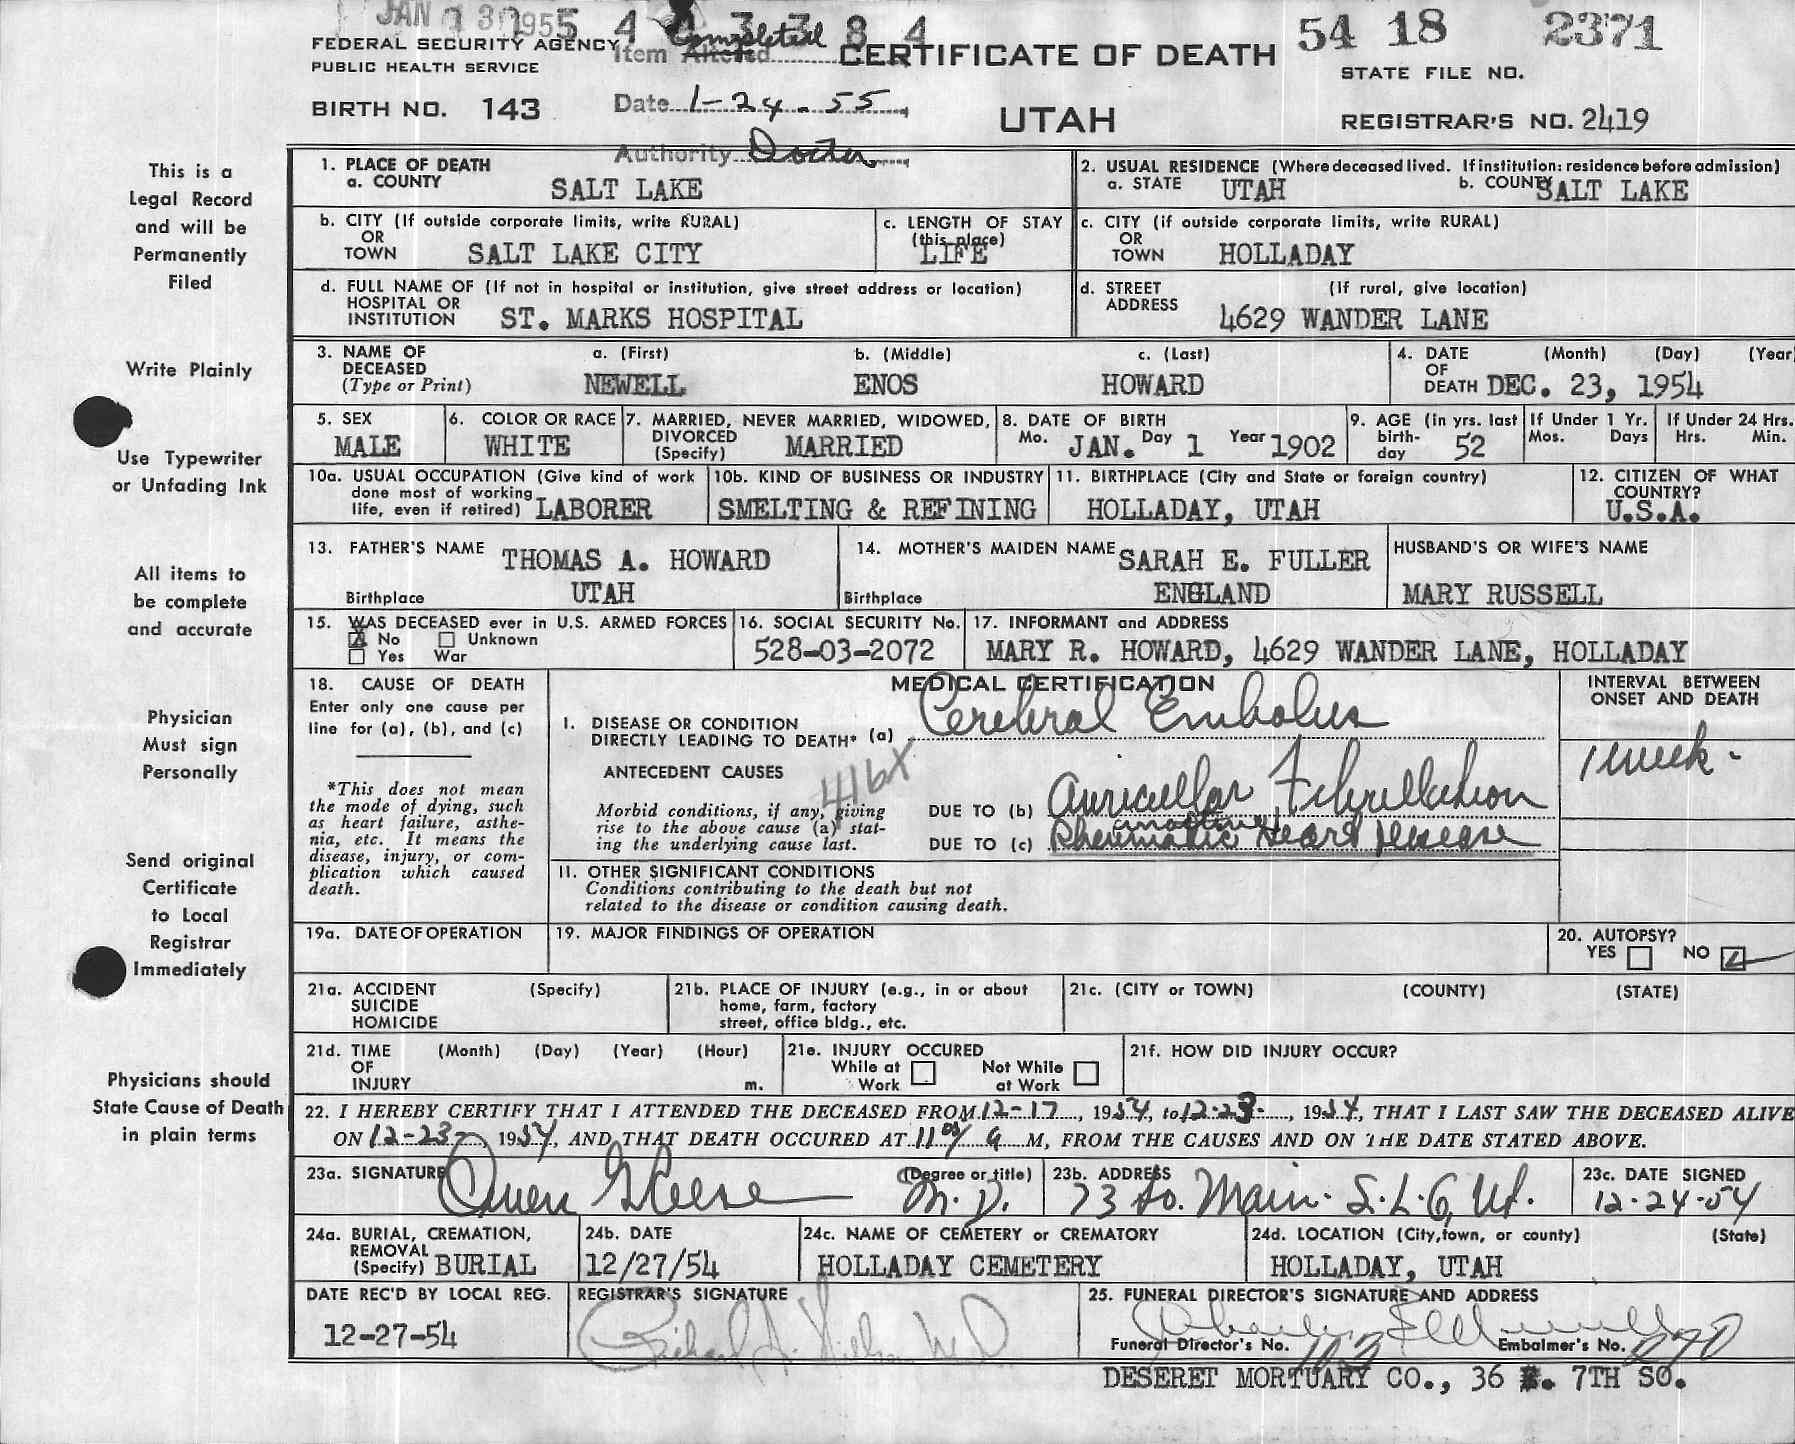 JAN 13 1955 4 4 3 3 8 4
54 18 2371
FEDERAL SECURITY AGENCY
PUBLIC HEALTH SERVICE
Item Altered Completed
CERTIFICATE OF DEATH
STATE FILE NO.
BIRTH NO. 143
Date 1-24-55
UTAH
REGISTRAR'S NO. 2419
Authority Doctor
This is a
Legal Record
and will be
Permanently
Filed
Write Plainly
Use Typewriter
or Unfading Ink
All items to
be complete
and accurate
Physician
Must sign
Personally
Send original
Certificate
to Local
Registrar
Immediately
Physicians should
State Cause of Death
in plain terms
1. PLACE OF DEATH
a. COUNTY SALT LAKE
2. USUAL RESIDENCE (Where deceased lived. If institution: residence before admission)
a. STATE UTAH b. COUNTY SALT LAKE
b. CITY (If outside corporate limits, write RURAL)
OR
TOWN SALT LAKE CITY
c. LENGTH OF STAY
(this place)
LIFE
c. CITY (if outside corporate limits, write RURAL)
OR
TOWN HOLLADAY
d. FULL NAME OF (If not in hospital or institution, give street address or location)
HOSPITAL OR
INSTITUTION ST. MARKS HOSPITAL
d. STREET (If rural, give location)
ADDRESS
4629 WANDER LANE
3. NAME OF a. (First) b. (Middle) c. (Last)
DECEASED
(Type or Print) NEWELL ENOS HOWARD
4. DATE (Month) (Day) (Year
OF
DEATH DEC. 23, 1954
5. SEX
MALE
6. COLOR OR RACE
WHITE
7. MARRIED, NEVER MARRIED, WIDOWED,
DIVORCED
(Specify) MARRIED
8. DATE OF BIRTH
Mo. JAN. Day 1 Year 1902
9. AGE (In yrs. last
birth-
day 52
If Under 1 Yr.
Mos. Days
If Under 24 Hrs.
Hrs. Min.
10a. USUAL OCCUPATION (Give kind of work
done most of working
life, even if retired) LABORER
10b. KIND OF BUSINESS OR INDUSTRY
SMELTING & REFINING
11. BIRTHPLACE (City and State or foreign country)
HOLLADAY, UTAH
12. CITIZEN OF WHAT
COUNTRY?
U.S.A.
13. FATHER'S NAME THOMAS A. HOWARD
Birthplace UTAH
14. MOTHER'S MAIDEN NAME SARAH E. FULLER
Birthplace ENGLAND
HUSBAND'S OR WIFE'S NAME
MARY RUSSELL
15. WAS DECEASED ever in U.S. ARMED FORCES
X No Unknown
Yes War
16. SOCIAL SECURITY No.
528-03-2072
17. INFORMANT and ADDRESS
MARY R. HOWARD, 4629 WANDER LANE, HOLLADAY
18. CAUSE OF DEATH
Enter only one cause per
line for (a), (b), and (c)
*This does not mean
the mode of dying, such
as heart failure, asthe-
nia, etc. It means the
disease, injury, or com-
plication which caused
death.
MEDICAL CERTIFICATION
I. DISEASE OR CONDITION
DIRECTLY LEADING TO DEATH* (a) Cerebral Embolus
ANTECEDENT CAUSES
416X
Morbid conditions, if any, giving
rise to the above cause (a) stat-
ing the underlying cause last.
DUE TO (b) Auricular Fibrillation
inactive
DUE TO (c) Rheumatic Heart Disease
INTERVAL BETWEEN
ONSET AND DEATH
1 week -
II. OTHER SIGNIFICANT CONDITIONS
Conditions contributing to the death but not
related to the disease or condition causing death.
19a. DATE OF OPERATION
19. MAJOR FINDINGS OF OPERATION
20. AUTOPSY?
YES NO
21a. ACCIDENT (Specify)
SUICIDE
HOMICIDE
21b. PLACE OF INJURY (e.g., in or about
home, farm, factory
street, office bldg., etc.
21c. (CITY or TOWN) (COUNTY) (STATE)
21d. TIME (Month) (Day) (Year) (Hour)
OF
INJURY m.
21e. INJURY OCCURED
While at Not While
Work at Work
21f. HOW DID INJURY OCCUR?
22. I HEREBY CERTIFY THAT I ATTENDED THE DECEASED FROM 12-17, 1954, to 12-23-, 1954, THAT I LAST SAW THE DECEASED ALIVE
ON 12-23-, 1954, AND THAT DEATH OCCURED AT 11 a M, FROM THE CAUSES AND ON THE DATE STATED ABOVE.
23a. SIGNATURE Owen G Reese
(Degree or title)
M.D.
23b. ADDRESS
73 So. Main. S.L.C, Ut.
23c. DATE SIGNED
12-24-54
24a. BURIAL, CREMATION,
REMOVAL
(Specify) BURIAL
24b. DATE
12/27/54
24c. NAME OF CEMETERY or CREMATORY
HOLLADAY CEMETERY
24d. LOCATION (City, town, or county) (State)
HOLLADAY, UTAH
DATE REC'D BY LOCAL REG.
12-27-54
REGISTRAR'S SIGNATURE
Richard
25. FUNERAL DIRECTOR'S SIGNATURE AND ADDRESS
Funeral Director's No. Embalmer's No.
DESERET MORTUARY CO., 36 E. 7TH SO.